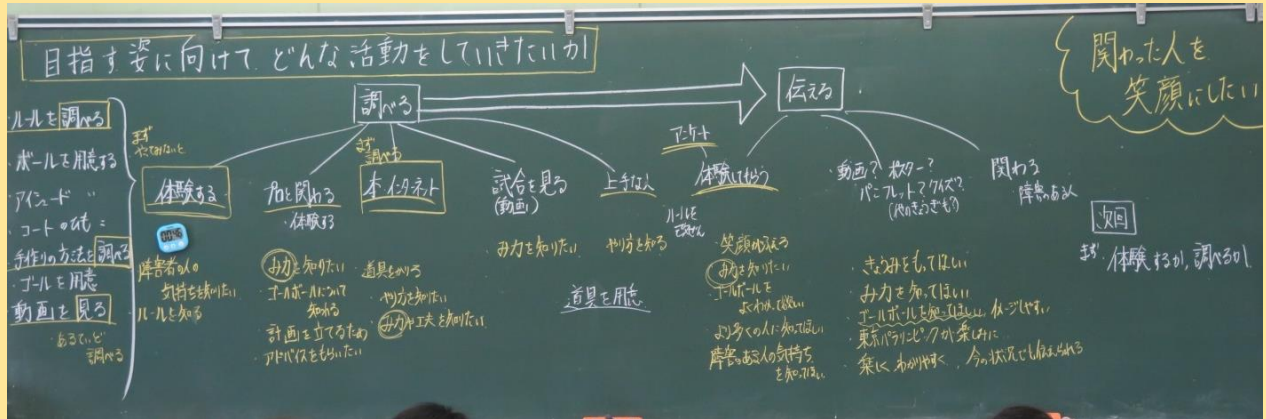 目指す姿に向けて どんな活動をしていきたいか
関わった人を
笑顔にしたい
調べる
伝える
・ルールを調べる
・ボールを用意する
・アイシェード 〃
・コートのひも 〃
手作りの方法を調べる
・ゴールを用意
動画を見る
・あるていど
調べる
まず
やってみないと
体験する
0046
障害者の人の
気持ちを知りたい
ルールを知る
プロと関わる
・体験する
み力を知りたい
ゴールボールについて
知れる
計画を立てるため
アドバイスをもらいたい
まず
調べる
本 インターネット
道具をかりる
・やり方を知りたい
・み力や工夫を知りたい
試合を見る
(動画)
み力を知りたい
上手な人
やり方を知る
道具を用意
アンケート
体験してもらう
ルールを
・笑顔がふえる
み力を知りたい
ゴールボールを
より多くの人に知ってほしい
障害のある人の気持ち
を知ってほしい
・動画? ポスター?
パンフレット? クイズ?
・きょうみをもってほしい
・み力を知ってほしい
・ゴールボールを知ってほしい イメージしやすい
・東京パラリンピックが楽しみに
・楽しく わかりやすく 今の状況でも伝えられる
関わる
障害のある人
次回
まず 体験するか、調べるか